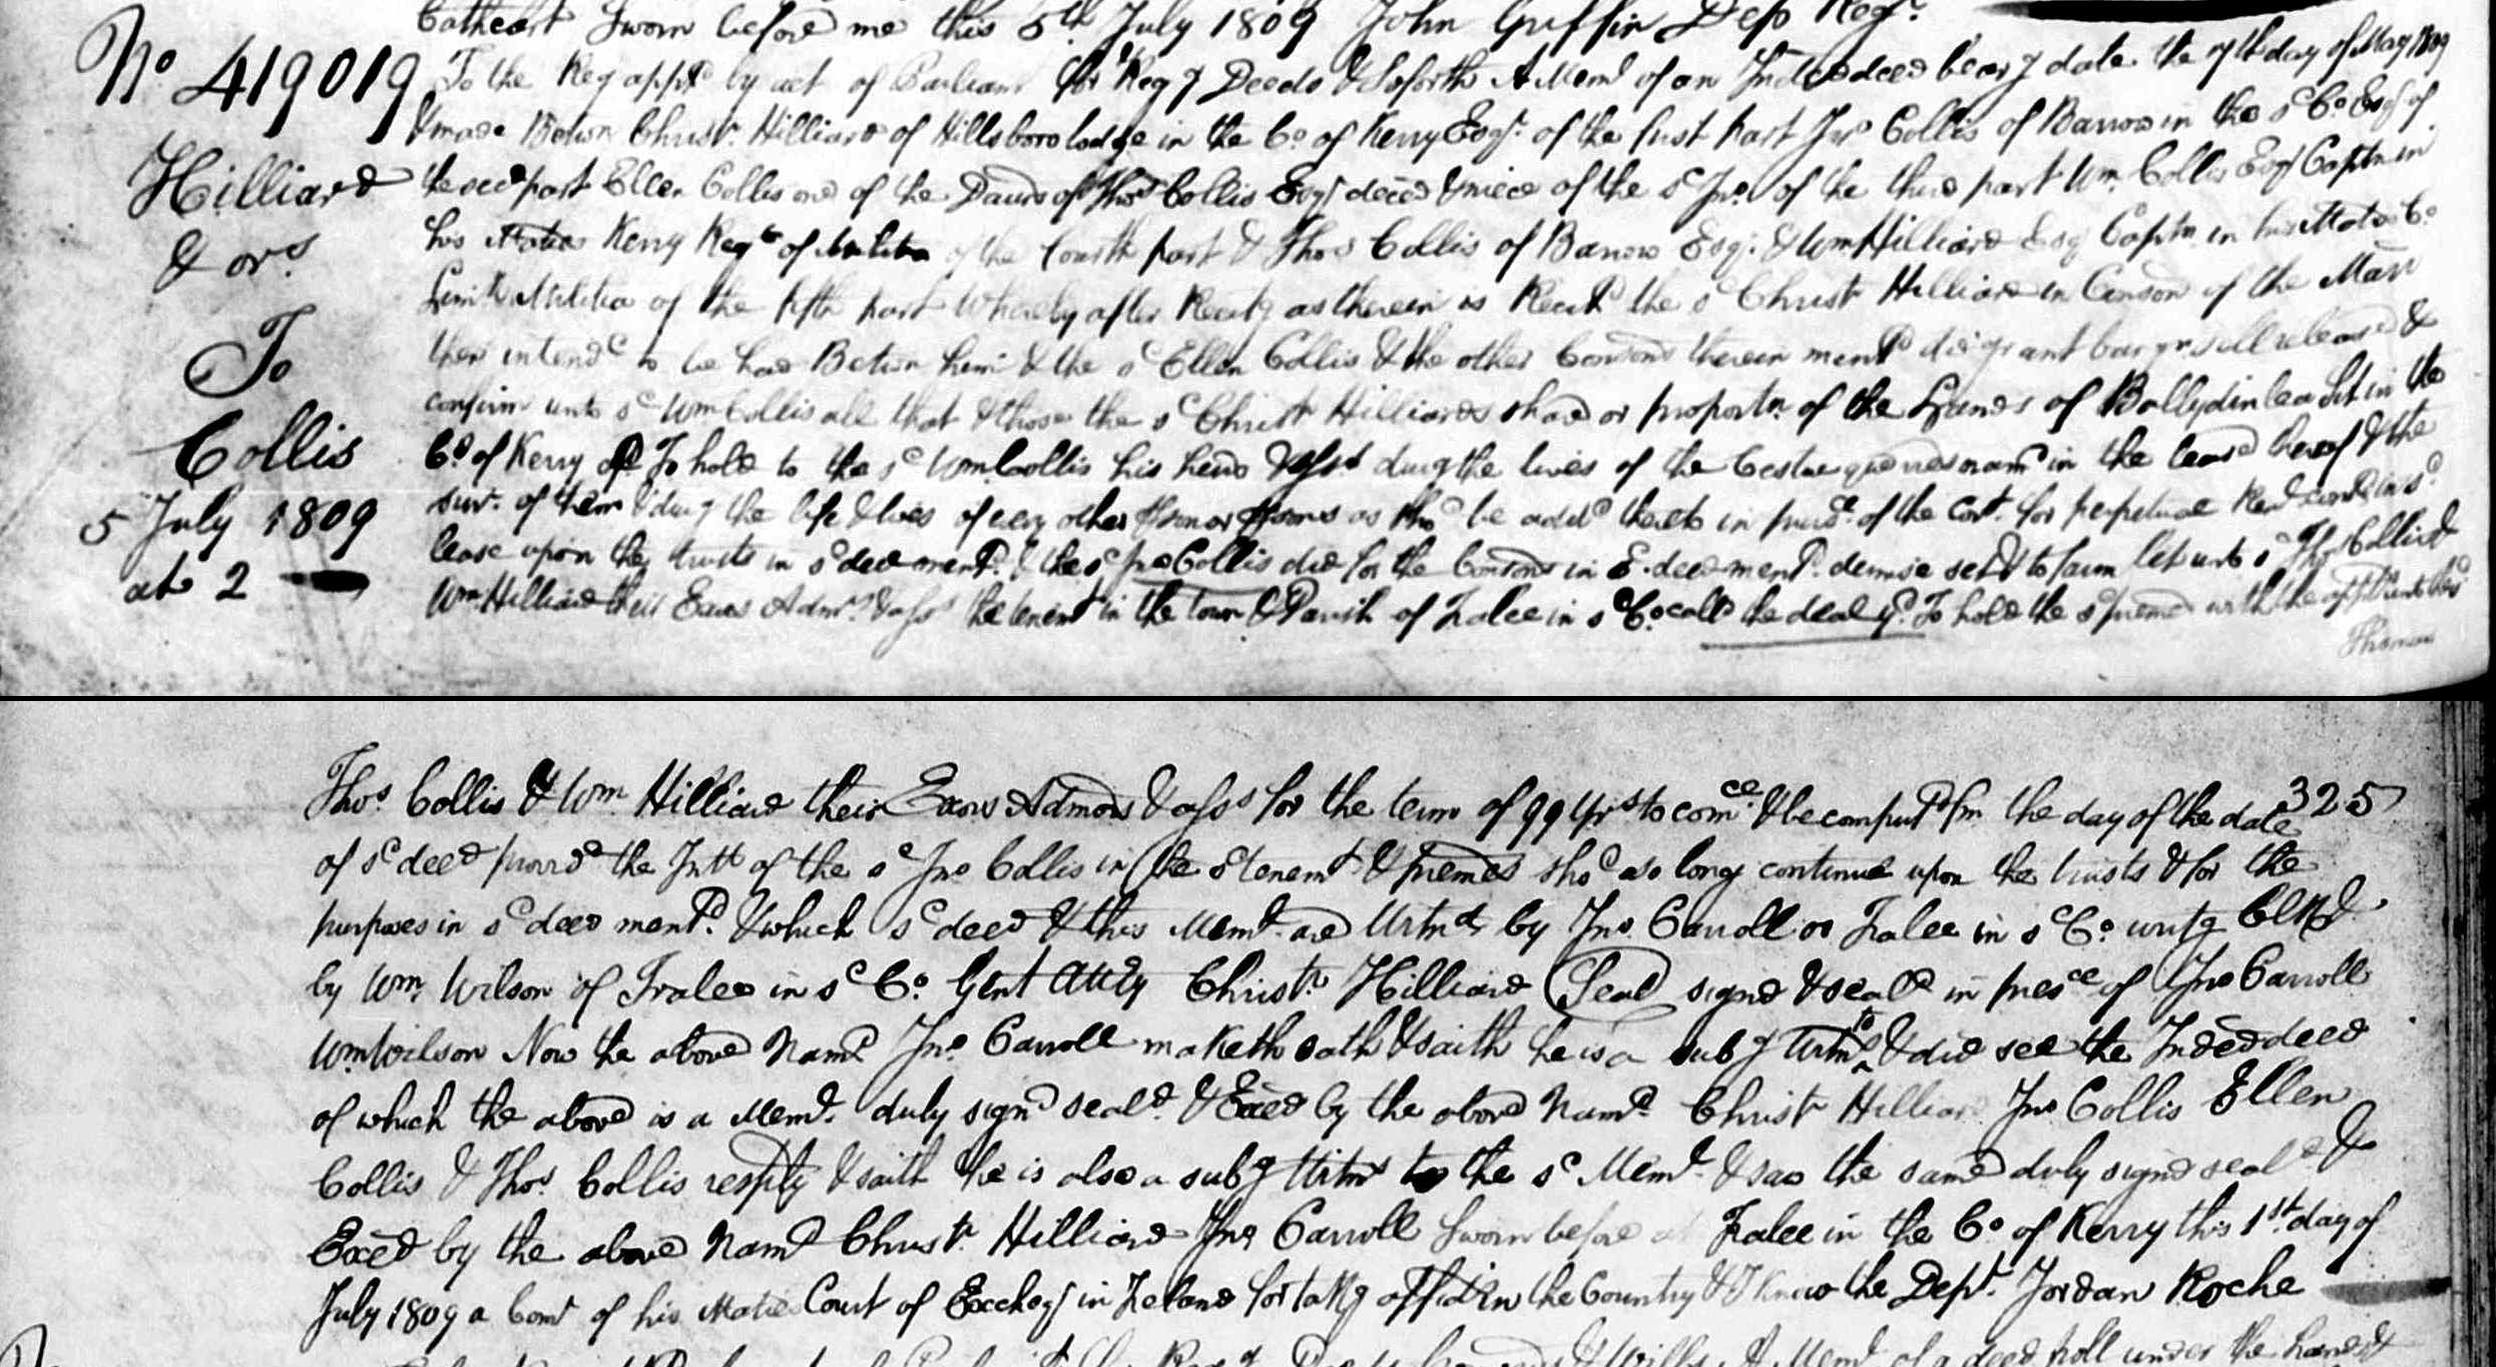 Cathcart Sworn before me this 5th July 1809 John Griffin Dep Regr.
No 419019
Hilliard
& ors
To
Collis
5 July 1809
at 2
To the Reg appd by act of Parliamt for Reg g Deeds & soforth A Meml of an Indeddeed bear g date the 7th day of May 1809
& made Betwn Christr. Hilliard of Hillsboro lodge in the Co. of Kerry Esqr. of the first part Jno Collis of Barrow in the sd Co. Esqr of
the secd part Ellen Collis one of the Daurs of Thos Collis Esqr deced & niece of the sd Jno. of the third part Wm. Collis Esqr Captn in
his Maties Kerry Regt of Militia of the fourth part & Thos Collis of Barrow Esq. & Wm Hilliard Esq Captn in his Maties Co.
Limk Militia of the fifth part Whereby after Recitg as therein is Recitd the sd Christr Hilliard in Conson of the Marr
then intendd to be had Betwn him & the sd Ellen Collis & the other Consons therein mentd did grant bargn. sell release &
confirm unto sd Wm Collis all that & those the sd Christr Hilliards share or proportn. of the Lands of Ballydinlea Sit in the
Co. of Kerry afd To hold to the sd Wm. Collis his heirs & assns durg the lives of the Cestue que vies namd in the lease thereof & the
survr. of them & durg the life & lives of every other person or persons as shod be addd thereto in pursce. of the Covt. for perpetual Renl contd in sd
lease upon the trusts in sd deed mentd. & the sd Jno Collis did for the Consons in sd deed mentd. demise set & to farm let unto sd Thos Collis &
Wm Hilliard their Exors Admrs. & assns the tenemt in the town & Parish of Tralee in sd Co. calld the deal yd. To hold the sd premes with the appts unto the sd
Thomas
325
Thos Collis & Wm Hilliard their Exors Admors & assns for the term of 99 Yrs to comce & be computd fm the day of the date
of sd deed provd the Intt of the sd Jno Collis in the sd tenemt & premes shod so long continue upon the trusts & for the
purposes in sd deed mentd. & which sd deed & this Meml are Witnd by Jno Carroll of Tralee in sd Co. writg Clk &
by Wm Wilson of Tralee in sd Co. Gent Atty Christr. Hilliard (Seal) signd & seald in presce of Jno Carroll
Wm Wilson Now the above Namd Jno. Carroll maketh oath & saith he is a subg Witns to & did see the Indeddeed
of which the above is a Meml. duly signd seald & Exed by the above Namd Christr Hilliard Jno Collis Ellen
Collis & Thos. Collis resptly & saith he is also a subg Witns to the sd Meml & saw the same duly signd seald &
Exed by the above Namd Christr. Hilliard Jno Carroll Sworn before at Tralee in the Co. of Kerry this 1st day of
July 1809 a Comr of his Maties Court of Excheqr in Ireland for takg affidts in the Country & I know the Dept. Jordan Roche